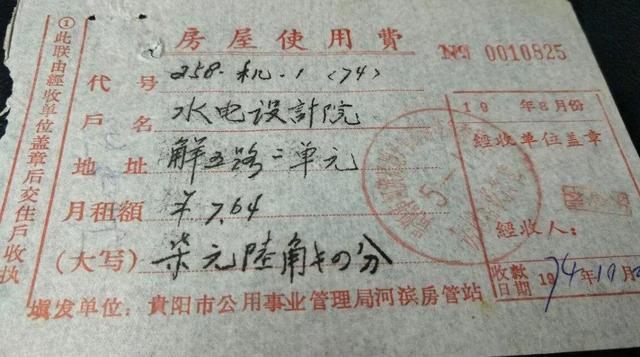 房屋使用費
№ 0010825
代号 258-机-1(74)
戶名 水电设計院
地址 解五路二单元
月租額 ￥7.64
(大写) 柒元陸角肆分
填发单位：貴阳市公用事业管理局河滨房管站
19 年8月份
經收单位盖章
經收人：
收款日期 1974年10月
①此联由經收单位盖章后交住戶收执